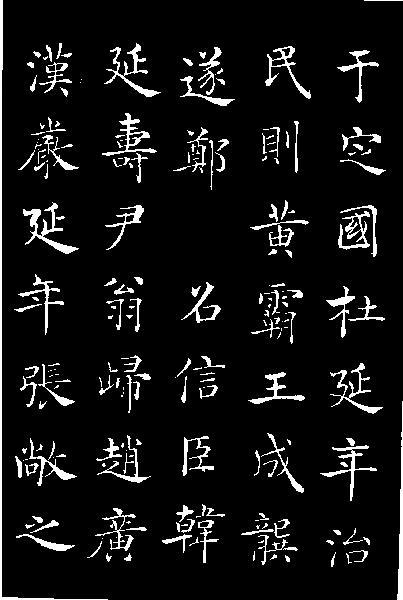 于定國杜延年治
民則黃霸王成龔
遂鄭 名信臣韓
延壽尹翁歸趙廣
漢嚴延年張敞之